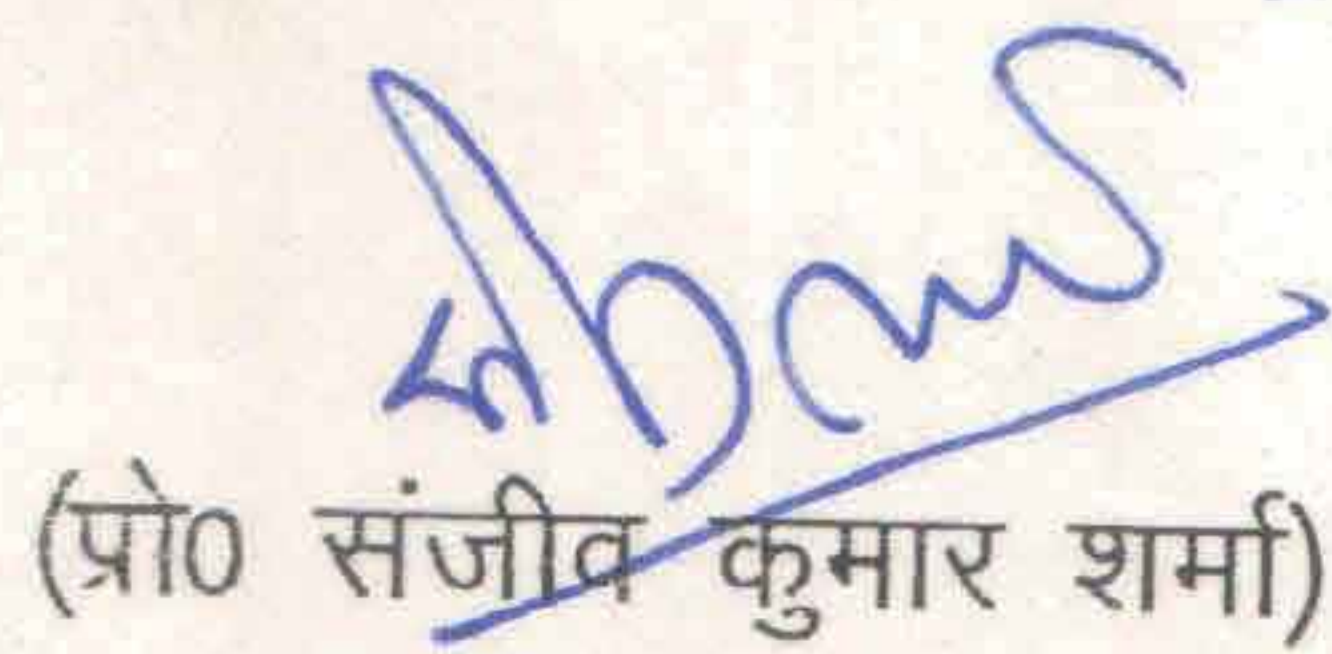 (प्रो0 संजीव कुमार शर्मा)